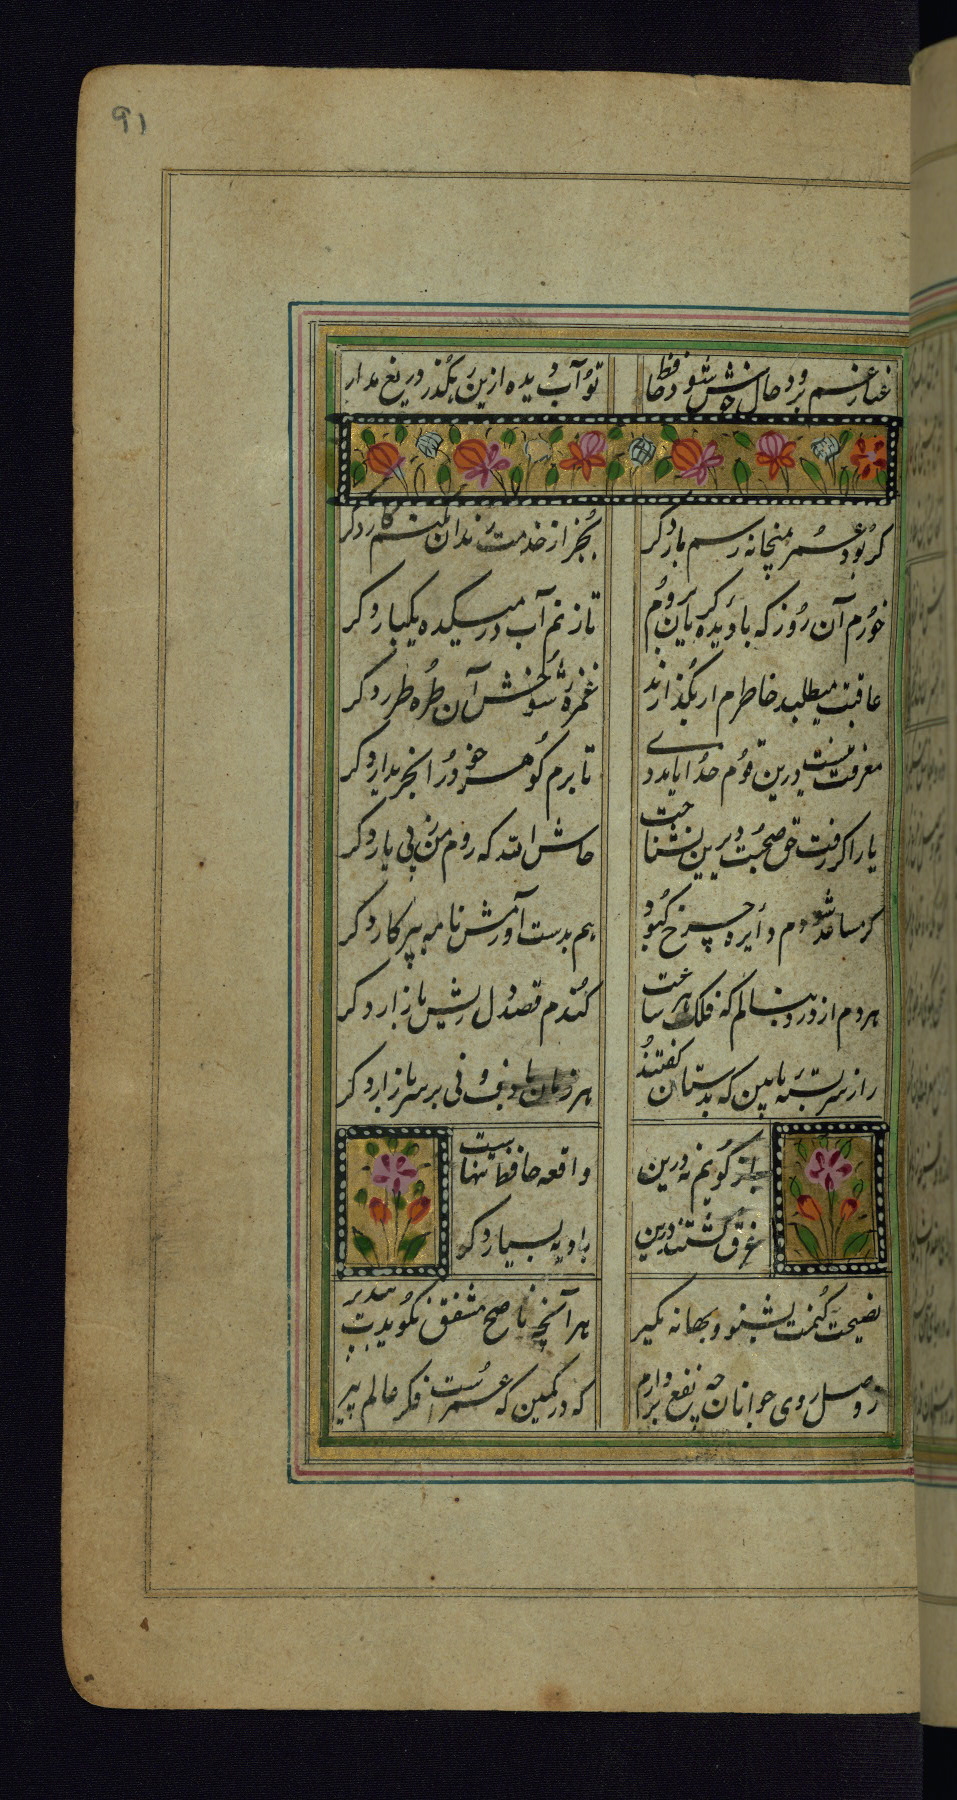 91
غبار غم برود حال خوش شود حافظ
تو آب دیده ازین رهگذر دریغ مدار
کر بود عمر بمیخانه رسم بار دکر
بجز از خدمت رندان نکنم کار دکر
خورم آن روز که با دیده کریان بروم
تا زنم آب در میکده یکبار دکر
عافیت میطلبد خاطرم ار بگذارند
غمزه شوخش آن طره طرار دکر
معرفت نیست درین قوم خدایا مددی
تا برم گوهر خود را بخریدار دکر
یار اکر رفت حق صحبت دیرین نشناخت
حاش لله که روم من ز پی یار دکر
کر مساعد شودم دایره چرخ کبود
هم بدست آورمش نامه بپرکار دکر
هر دم از درد بنالم که فلک هر ساعت
کندم قصد دل ریش بازار دکر
راز سربسته ما بین که بدستان گفتند
هر زمان با دف و نی بر سر بازار دکر
باز گویم نه درین
واقعه حافظ تنهاست
غرق گشتند درین
بادیه بسیار دکر
نصیحت کنمت بشنو و بهانه مگیر
هر آنچه ناصح مشفق نگویدت بپذیر
ز وصل روی جوانان چه نفع بردارم
که در کمین که عمرست فکر عالم پیر